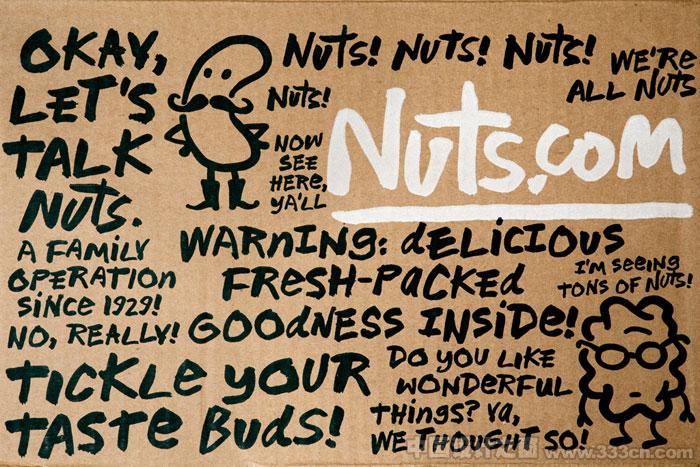 OKAY,
LET'S
TALK
NUTS.
A FAMILY
OPERATION
SINCE 1929!
NO, REALLY!
NUTS! NUTS! NUTS!
NUTS!
WE'RE
ALL NUTS
NOW
SEE
HERE,
YA'LL
Nuts.com
WARNING: dELICIOUS
FRESH-PACKEd
GOOdNESS INSIDE!
I'M SEEING
TONS OF NUTS!
TICKLE YOUR
TASTE BUDS!
DO YOU LIKE
WONDERFUL
THINGS? YA,
WE THOUGHT SO!
中国设计之窗
www.333cn.com